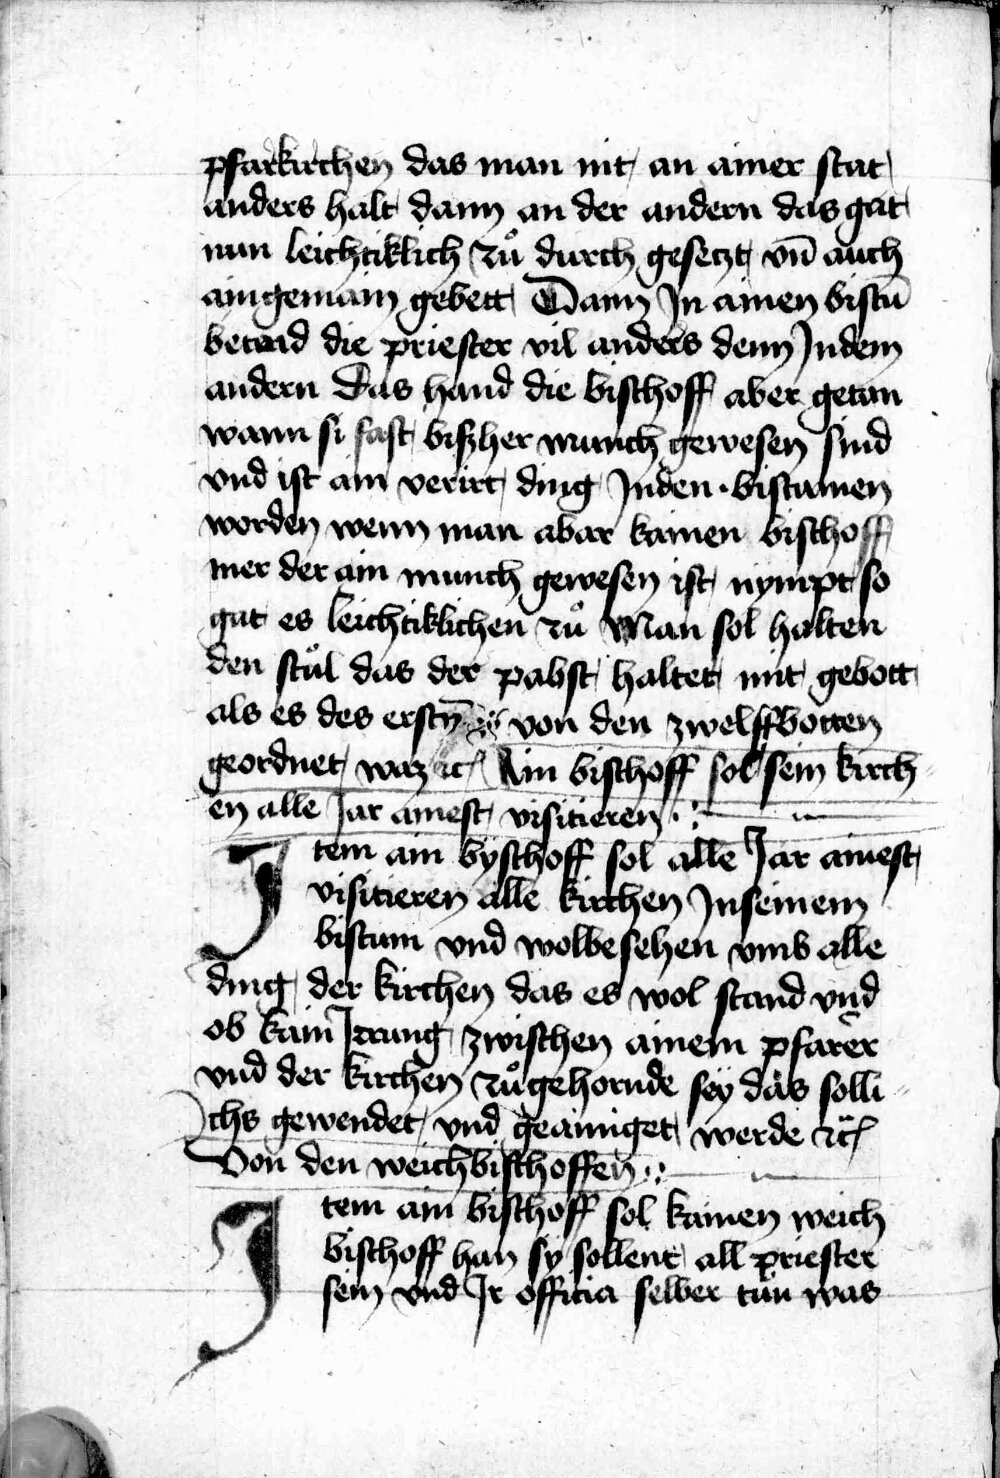 pfarkirchen das man nit an ainer stat
anders halt dann an der andern das gat
nun leichtiklich zů durch gesetzt vn̄ auch
aingemain gebett Dann Jn ainen bistū
betend die priester vil anders denn Jndem
andern Das hand die bischoff aber getan
wann si fast biszher munch gewesen sind
vnd ist ain verirt ding Jnden bistumen
worden wenn man abar kainen bischoff
mer der ain munch gewesen ist nympt so
gat es leichtiklichen zů Man sol halten
den stůl das der pabst haltet mit gebott
als es des erstn̄ von den zwelffbotten
geordnet waz ꝛc̄ Ain bischoff sol sein kirch-
en alle Jar ainest visitieren
Jtem ain byschoff sol alle Jar ainest
visitieren alle kirchen Jnseinem
bistum vnd wolbesehen vmb alle
ding der kirchen das es wol stand vnd
ob kain Jrrung zwischen ainem pfarer
vnd der kirchen zůgehornde sey das solli-
chs gewendet vnd geainiget werde ꝛc̄
Von den weichbischoffen
Jtem ain bischoff sol kainen weich
bischoff han sy sollent all priester
sein vnd Jr officia selber tůn was